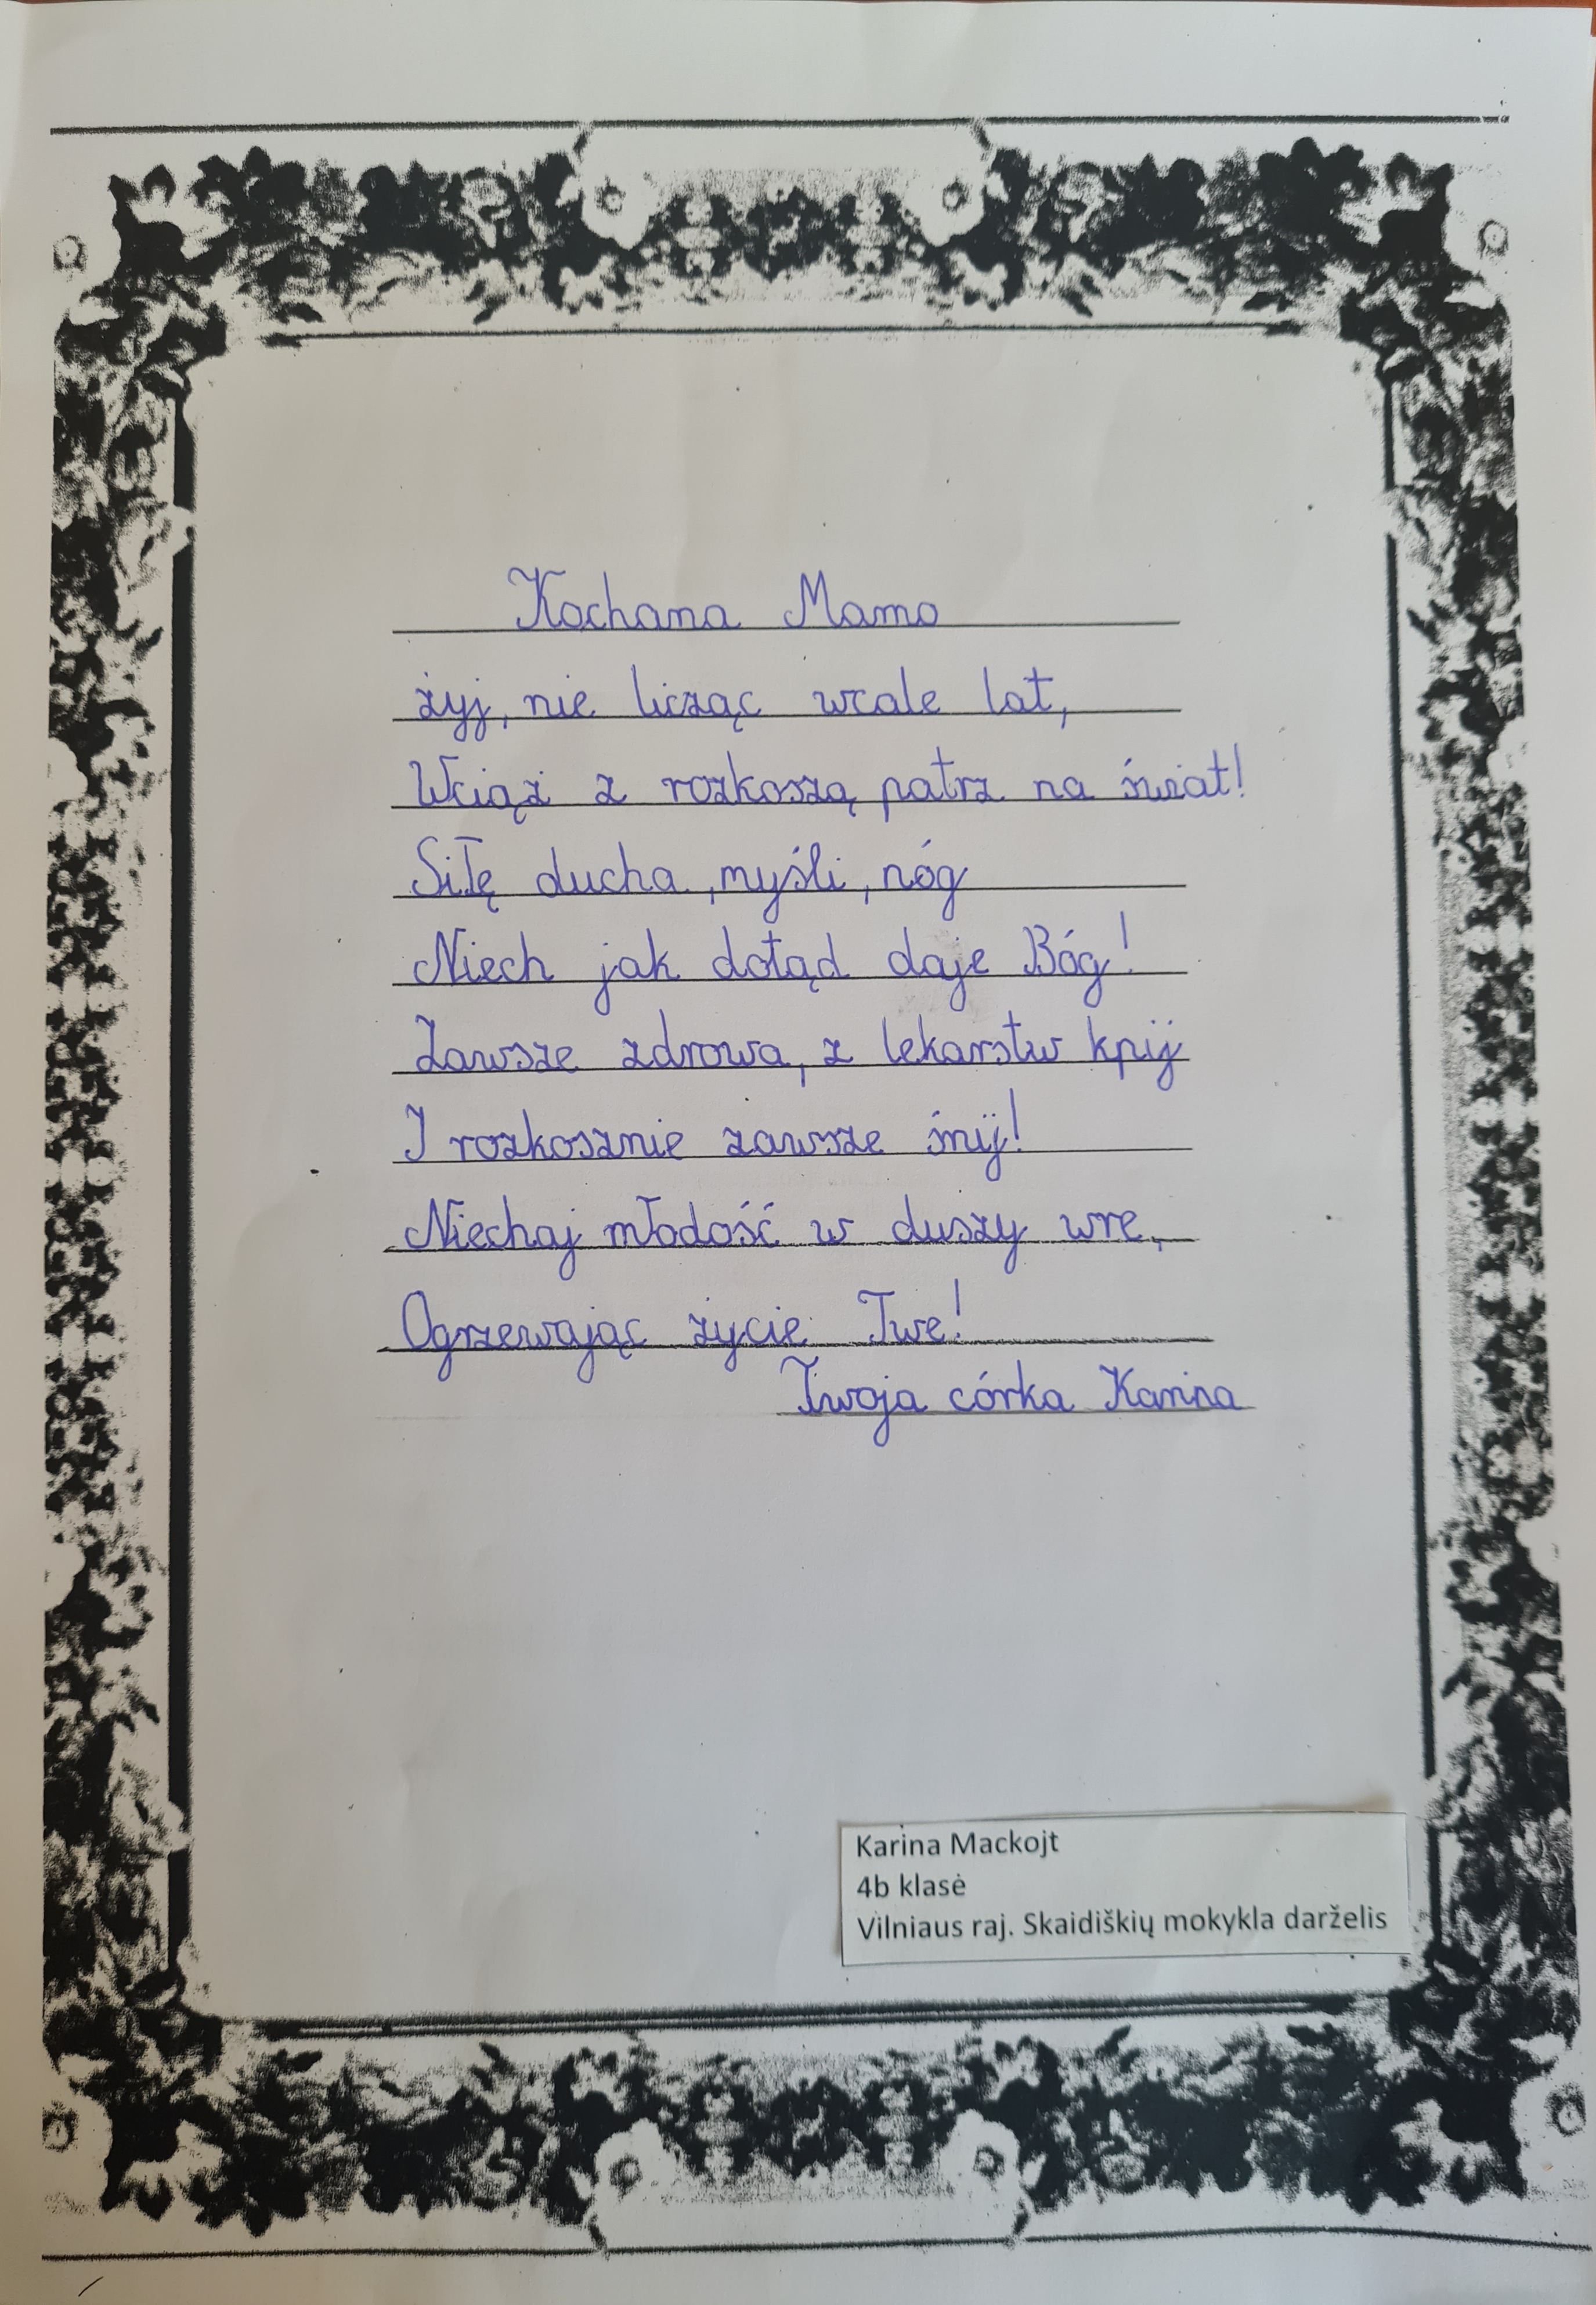 Kochana Mamo
żyj, nie licząc wcale lat,
Wciąż z rozkoszą patrz na świat!
Siłę ducha, myśli, nóg
Niech jak dotąd daje Bóg!
Zawsze zdrowa, z lekarstw kpij
I rozkosznie zawsze śnij!
Niechaj młodość w duszy wre,
Ogrzewając życie Twe!
Twoja córka Karina
Karina Mackojt
4b klasė
Vilniaus raj. Skaidiškių mokykla darželis